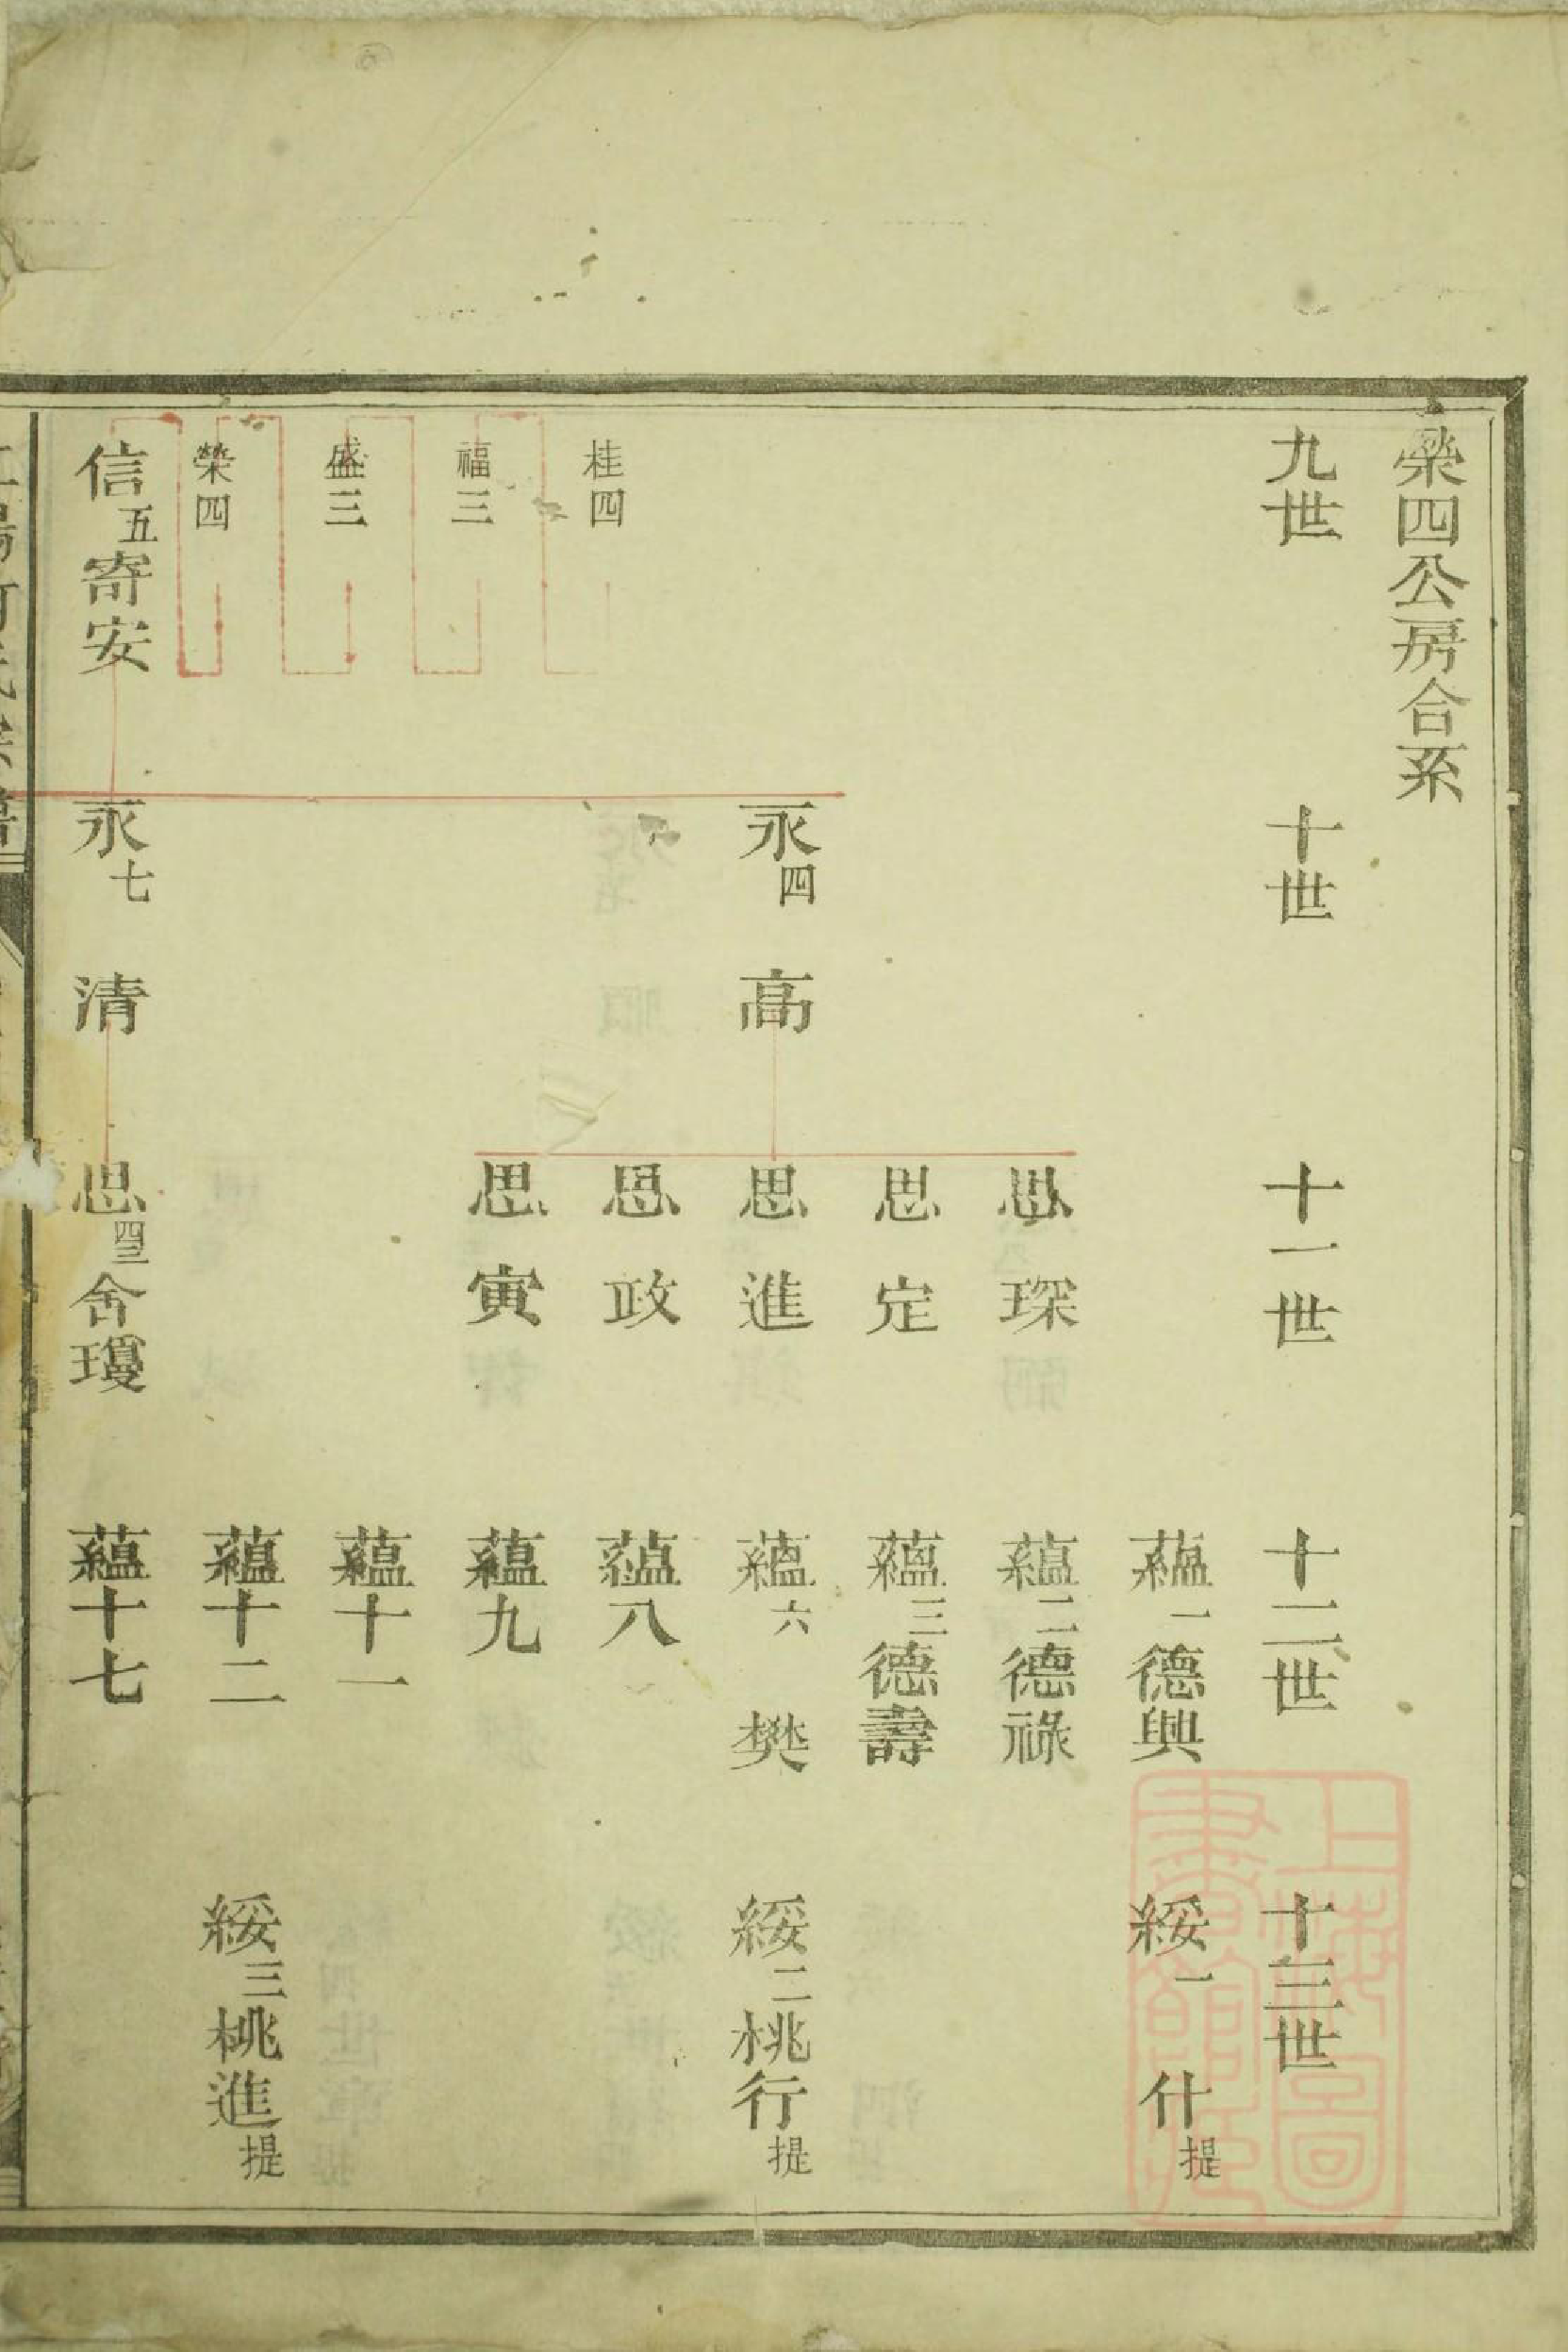 榮四公房合系
九世
十世
十一世
十二世
十三世
蘊一德興
綏一什提
思琛
蘊二德祿
思定
蘊三德壽
永四高
思進
蘊六樊
綏二桃行提
桂四
思政
蘊八
福三
思寅
蘊九
盛三
蘊十一
榮四
蘊十二
綏三桃進提
信五寄安
永七清
思四三舍瓊
蘊十七
上海圖書館藏